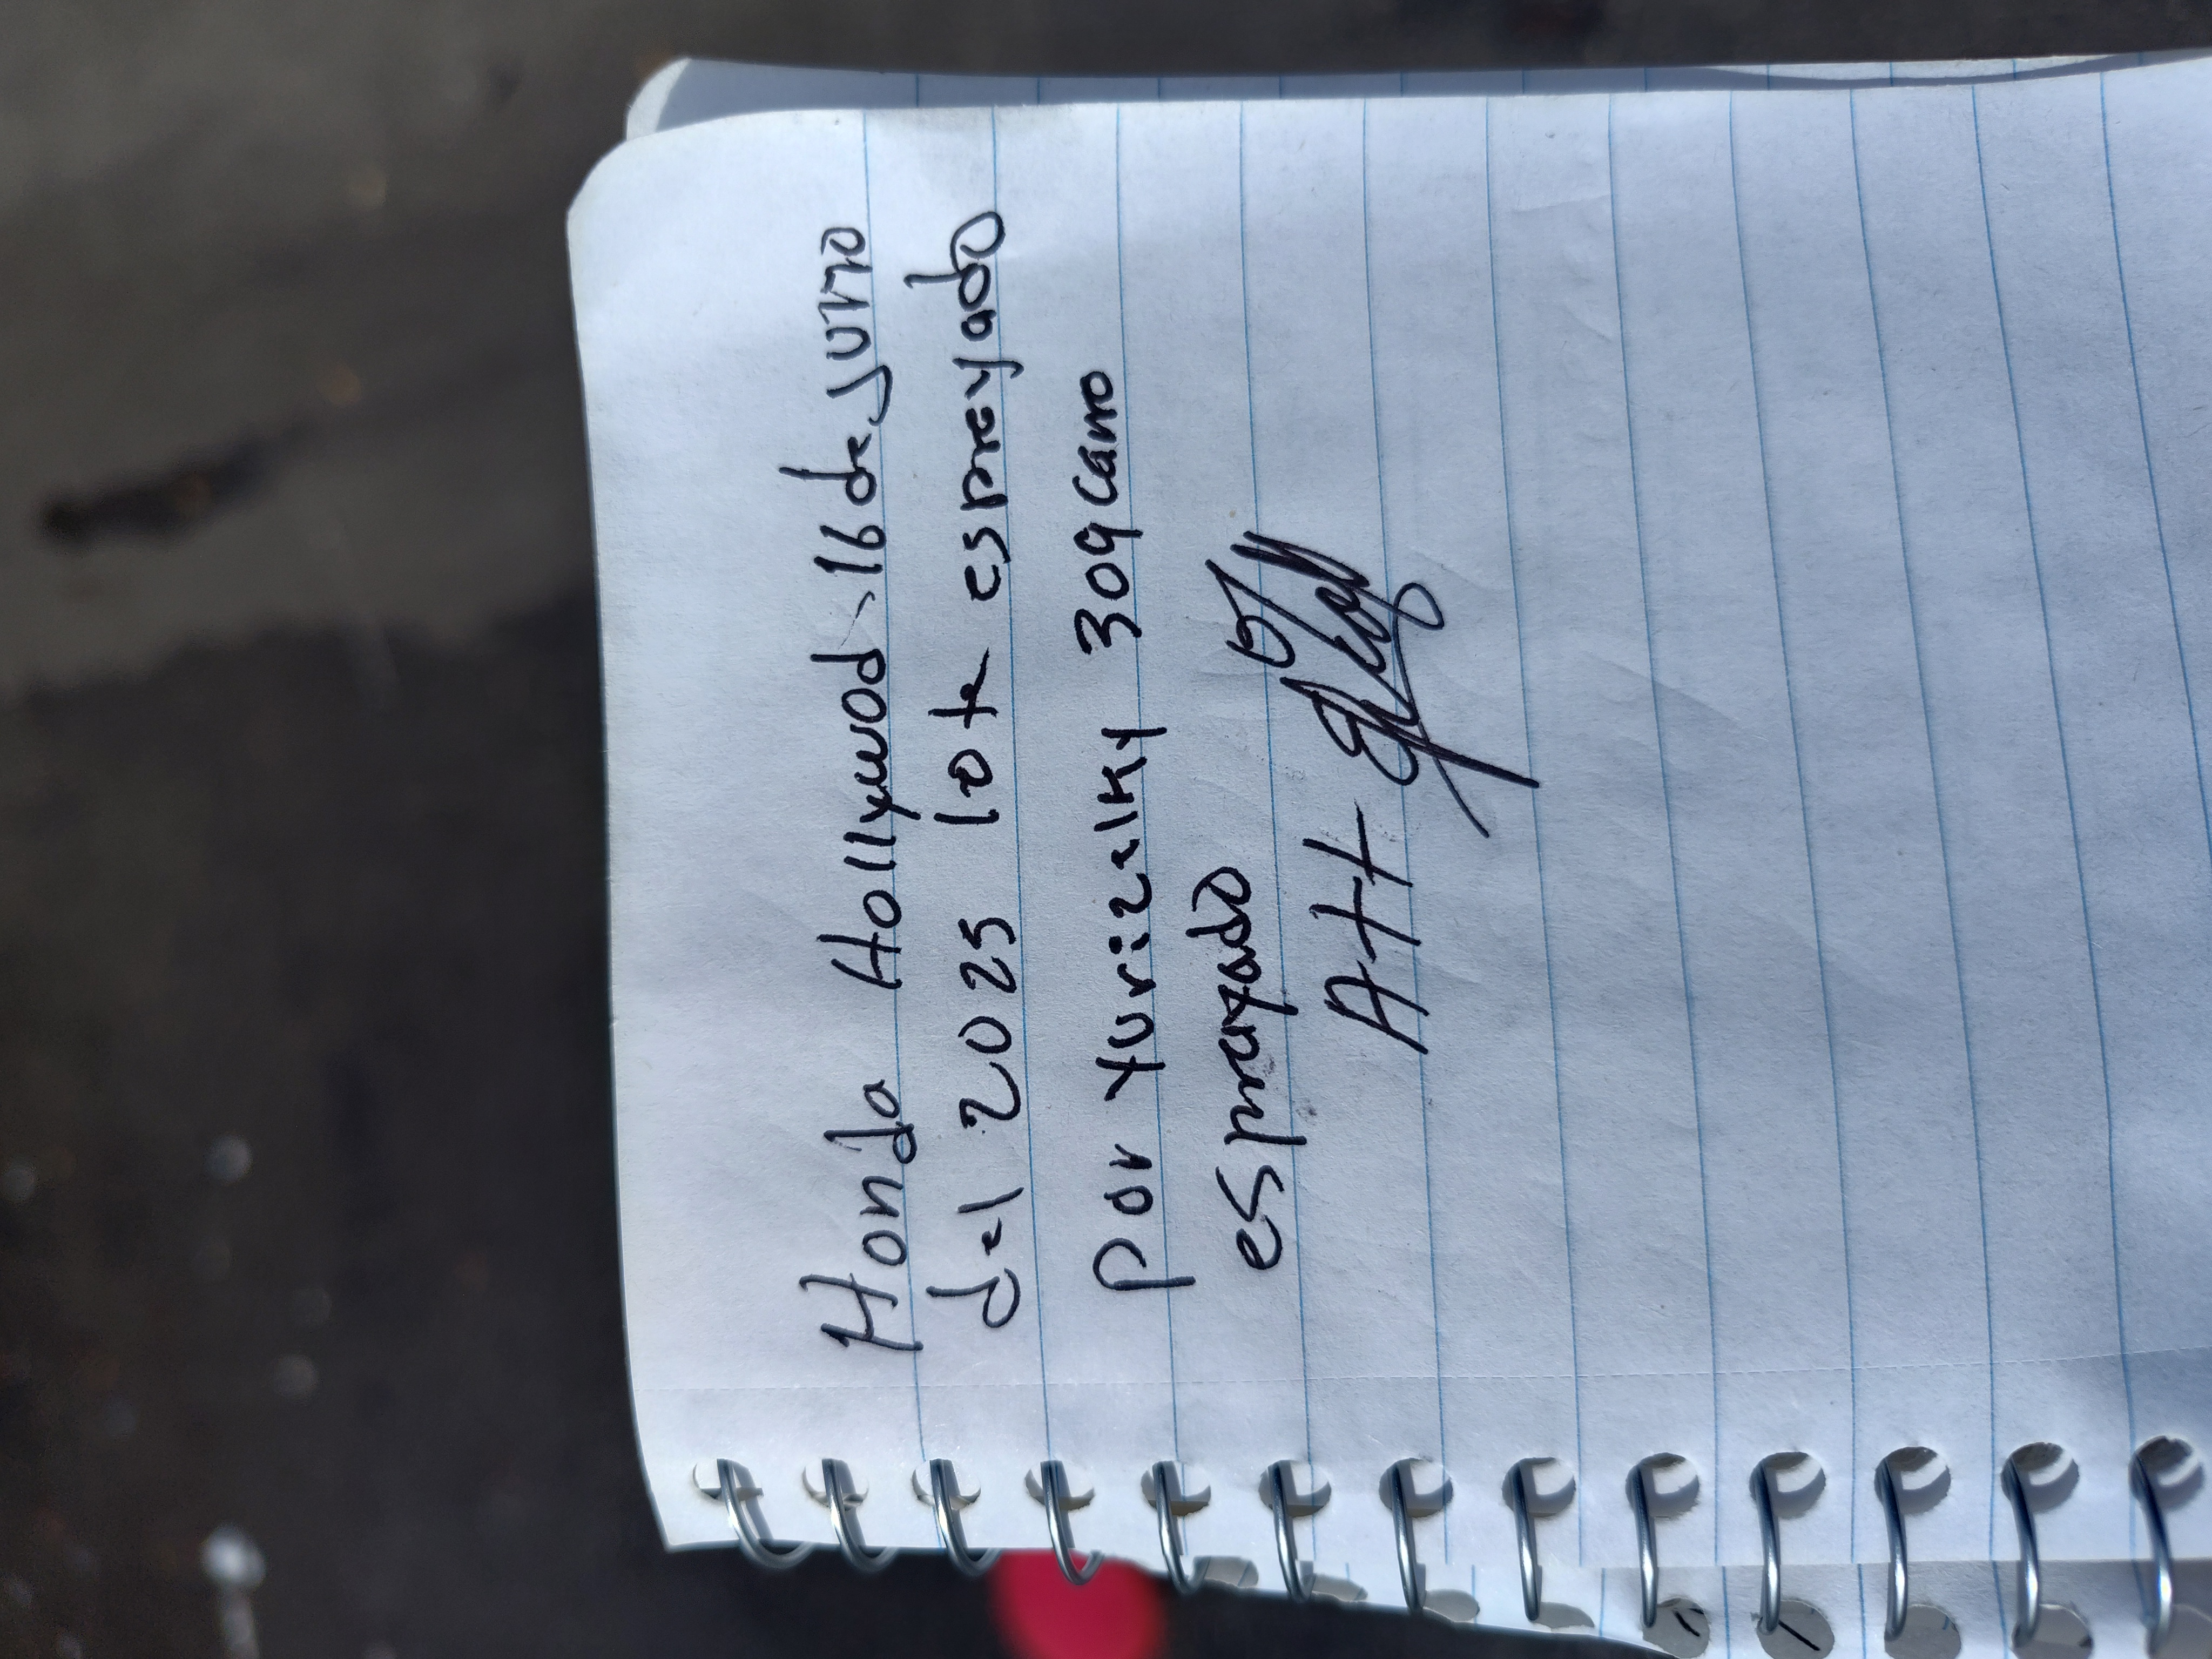 Honda Hollywood 16 de Junio
del 2025 lote espreyado
por Yurizelky 309 Carro
esprayado
AH